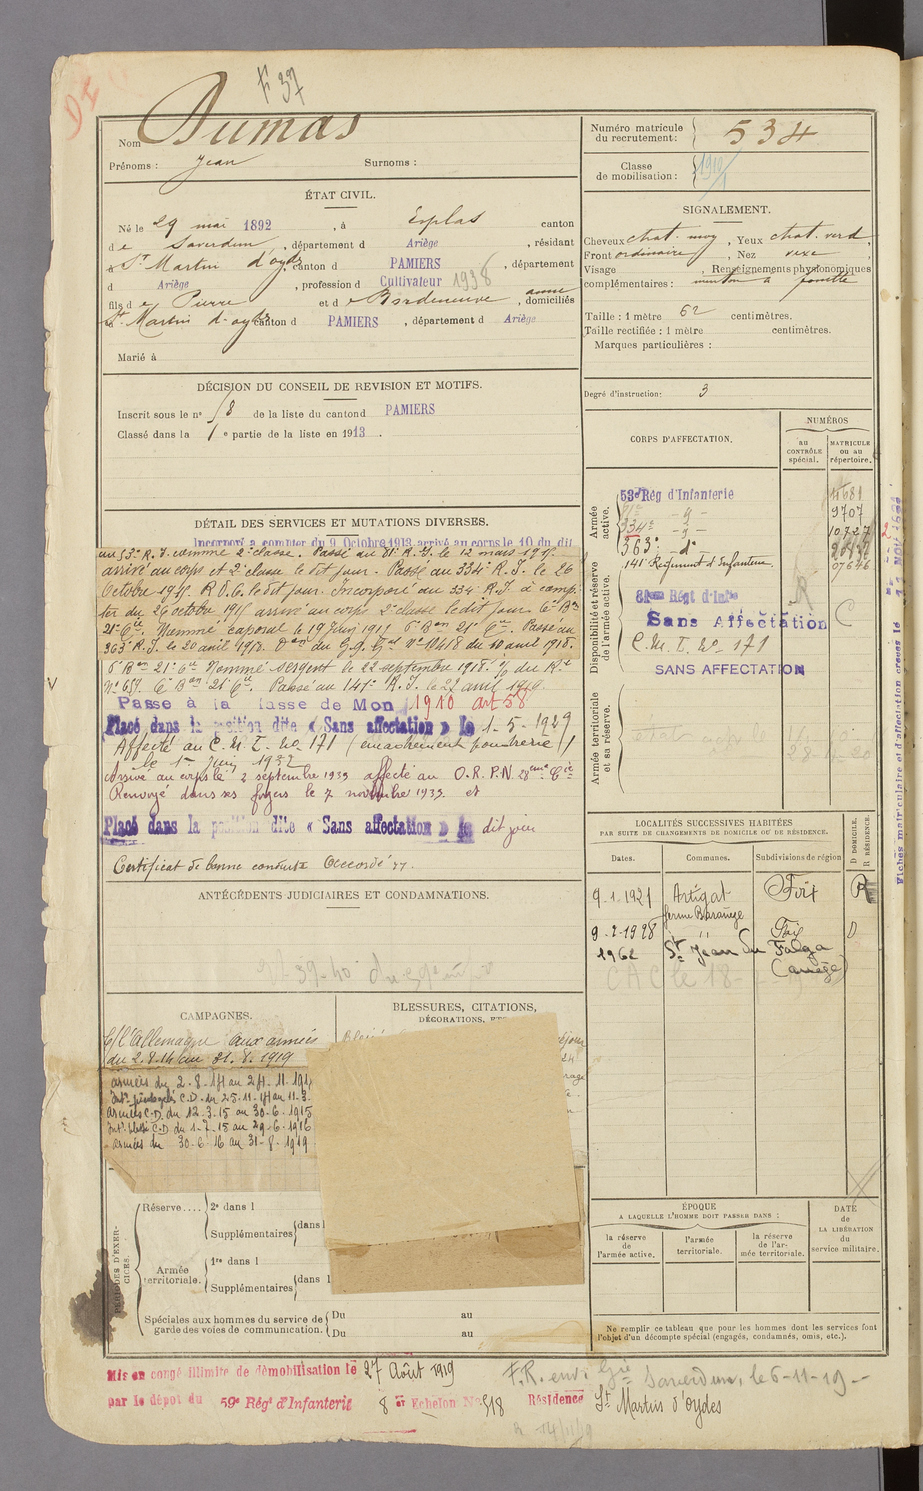 F 37
Nom Dumas
Prénoms : Jean Surnoms :
ÉTAT CIVIL.
Né le 29 mai 1892, à Esplas canton
de Saverdun, département d Ariège, résidant
à St Martin d'oydes, canton d PAMIERS, département
d Ariège, profession d Cultivateur 1938
fils de Pierre et de Bordeneuve anne, domiciliés
St Martin d'oydes canton d PAMIERS, département d Ariège
Marié à
DÉCISION DU CONSEIL DE REVISION ET MOTIFS.
Inscrit sous le n° 18 de la liste du canton d PAMIERS
Classé dans la 1e partie de la liste en 1913.
DÉTAIL DES SERVICES ET MUTATIONS DIVERSES.
Incorporé a compter du 9 Octobre 1913 arrivé au corps le 10 du dit
au 53e R.I. comme 2e classe. Passé au 81e R.I. le 12 mars 1915
arrivé au corps et 2e classe le dit jour. Passé au 334e R.I. le 26
Octobre 1915. R.D.C. le dit jour. Incorporé au 334e R.I. à comp-
ter du 26 octobre 1915 arrivé au corps 2e classe le dit jour 6e Bon
21e Cie. Nommé caporal le 19 Juin 191 6e Bon 21e Cie. Passé au
363e R.I. le 20 avril 1918. Don du G.Q. Gal No 10418 du 10 avril 1918.
6e Bon 21e Cie Nommé sergent le 22 septembre 1918. O/ du Rt
No 657. 6e Bon 21e Cie. Passé au 141e R.I. le 27 avril 1919
Passé à la classe de Mon 1910 art 58
Placé dans la position dite « Sans affectation » le 1-5-1929
Affecté au C.M.I. No 171 (encadrement poudrerie)
le 1er Juin 1932
Arrivé au corps le 2 septembre 1939 affecté au O.R.P.N. 28eme Cie
Renvoyé dans ses foyers le 7 novembre 1939. et
Placé dans la position dite « Sans affectation » le dit jour
Certificat de bonne conduite Accordé
ANTÉCÉDENTS JUDICIAIRES ET CONDAMNATIONS.
CAMPAGNES.
C/ l'Allemagne aux armées
du 2.8.14 au 31.8.1919
armées du 2-8-14 au 24-11-1914
C.D. du 25-11-14 au 11-3-
armées C.D. du 12-3-15 au 30-6-1915
Intr blessé C.D. du 1-7-15 au 29-6-1916
armées du 30-6-16 au 31-8-1919
BLESSURES, CITATIONS,
DÉCORATIONS, ETC
PÉRIODES D'EXER-
CICES.
Réserve.... 2e dans l
Supplémentaires dans l
Armée territoriale. 1re dans l
Supplémentaires dans l
Spéciales aux hommes du service de garde des voies de communication. Du au
Du au
Numéro matricule du recrutement : 534
Classe de mobilisation : 1910
SIGNALEMENT.
Cheveux chat. moy, Yeux chat. verd,
Front ordinaire, Nez vexe,
Visage , Renseignements physionomiques
complémentaires : menton à fossette
Taille : 1 mètre 62 centimètres.
Taille rectifiée : 1 mètre centimètres.
Marques particulières :
Degré d'instruction : 3
CORPS D'AFFECTATION.
NUMÉROS
au CONTRÔLE spécial.
MATRICULE ou au répertoire.
Armée active.
53e Rég d'Infanterie 4681
9707
334e 10727
363e -d-
141e Régiment d'Infanterie 07646
Disponibilité et réserve de l'armée active.
81eme Régt d'Infie R
Sans Affectation C
C.M.I. No 171
SANS AFFECTATION
Armée territoriale et sa réserve.
LOCALITÉS SUCCESSIVES HABITÉES
PAR SUITE DE CHANGEMENTS DE DOMICILE OU DE RÉSIDENCE.
Dates. Communes. Subdivisions de région D DOMICILE. R RÉSIDENCE.
9-1-1921 Artigat Foix R
ferme Barange
9-2-1928 " Foix D
1962 St Jean du Falga
(ariège)
CAC le 18-
ÉPOQUE
A LAQUELLE L'HOMME DOIT PASSER DANS :
la réserve de l'armée active.
l'armée territoriale.
la réserve de l'armée territoriale.
DATE de LA LIBÉRATION du service militaire.
Ne remplir ce tableau que pour les hommes dont les services font
l'objet d'un décompte spécial (engagés, condamnés, omis, etc.).
Mis en congé illimité de démobilisation le 27 Août 1919
par le dépot du 59e Régt d'Infanterie 8 er Echelon No 518 Résidence St Martin d'Oydes
F.R. envoi Gie Saverdun, le 6-11-19